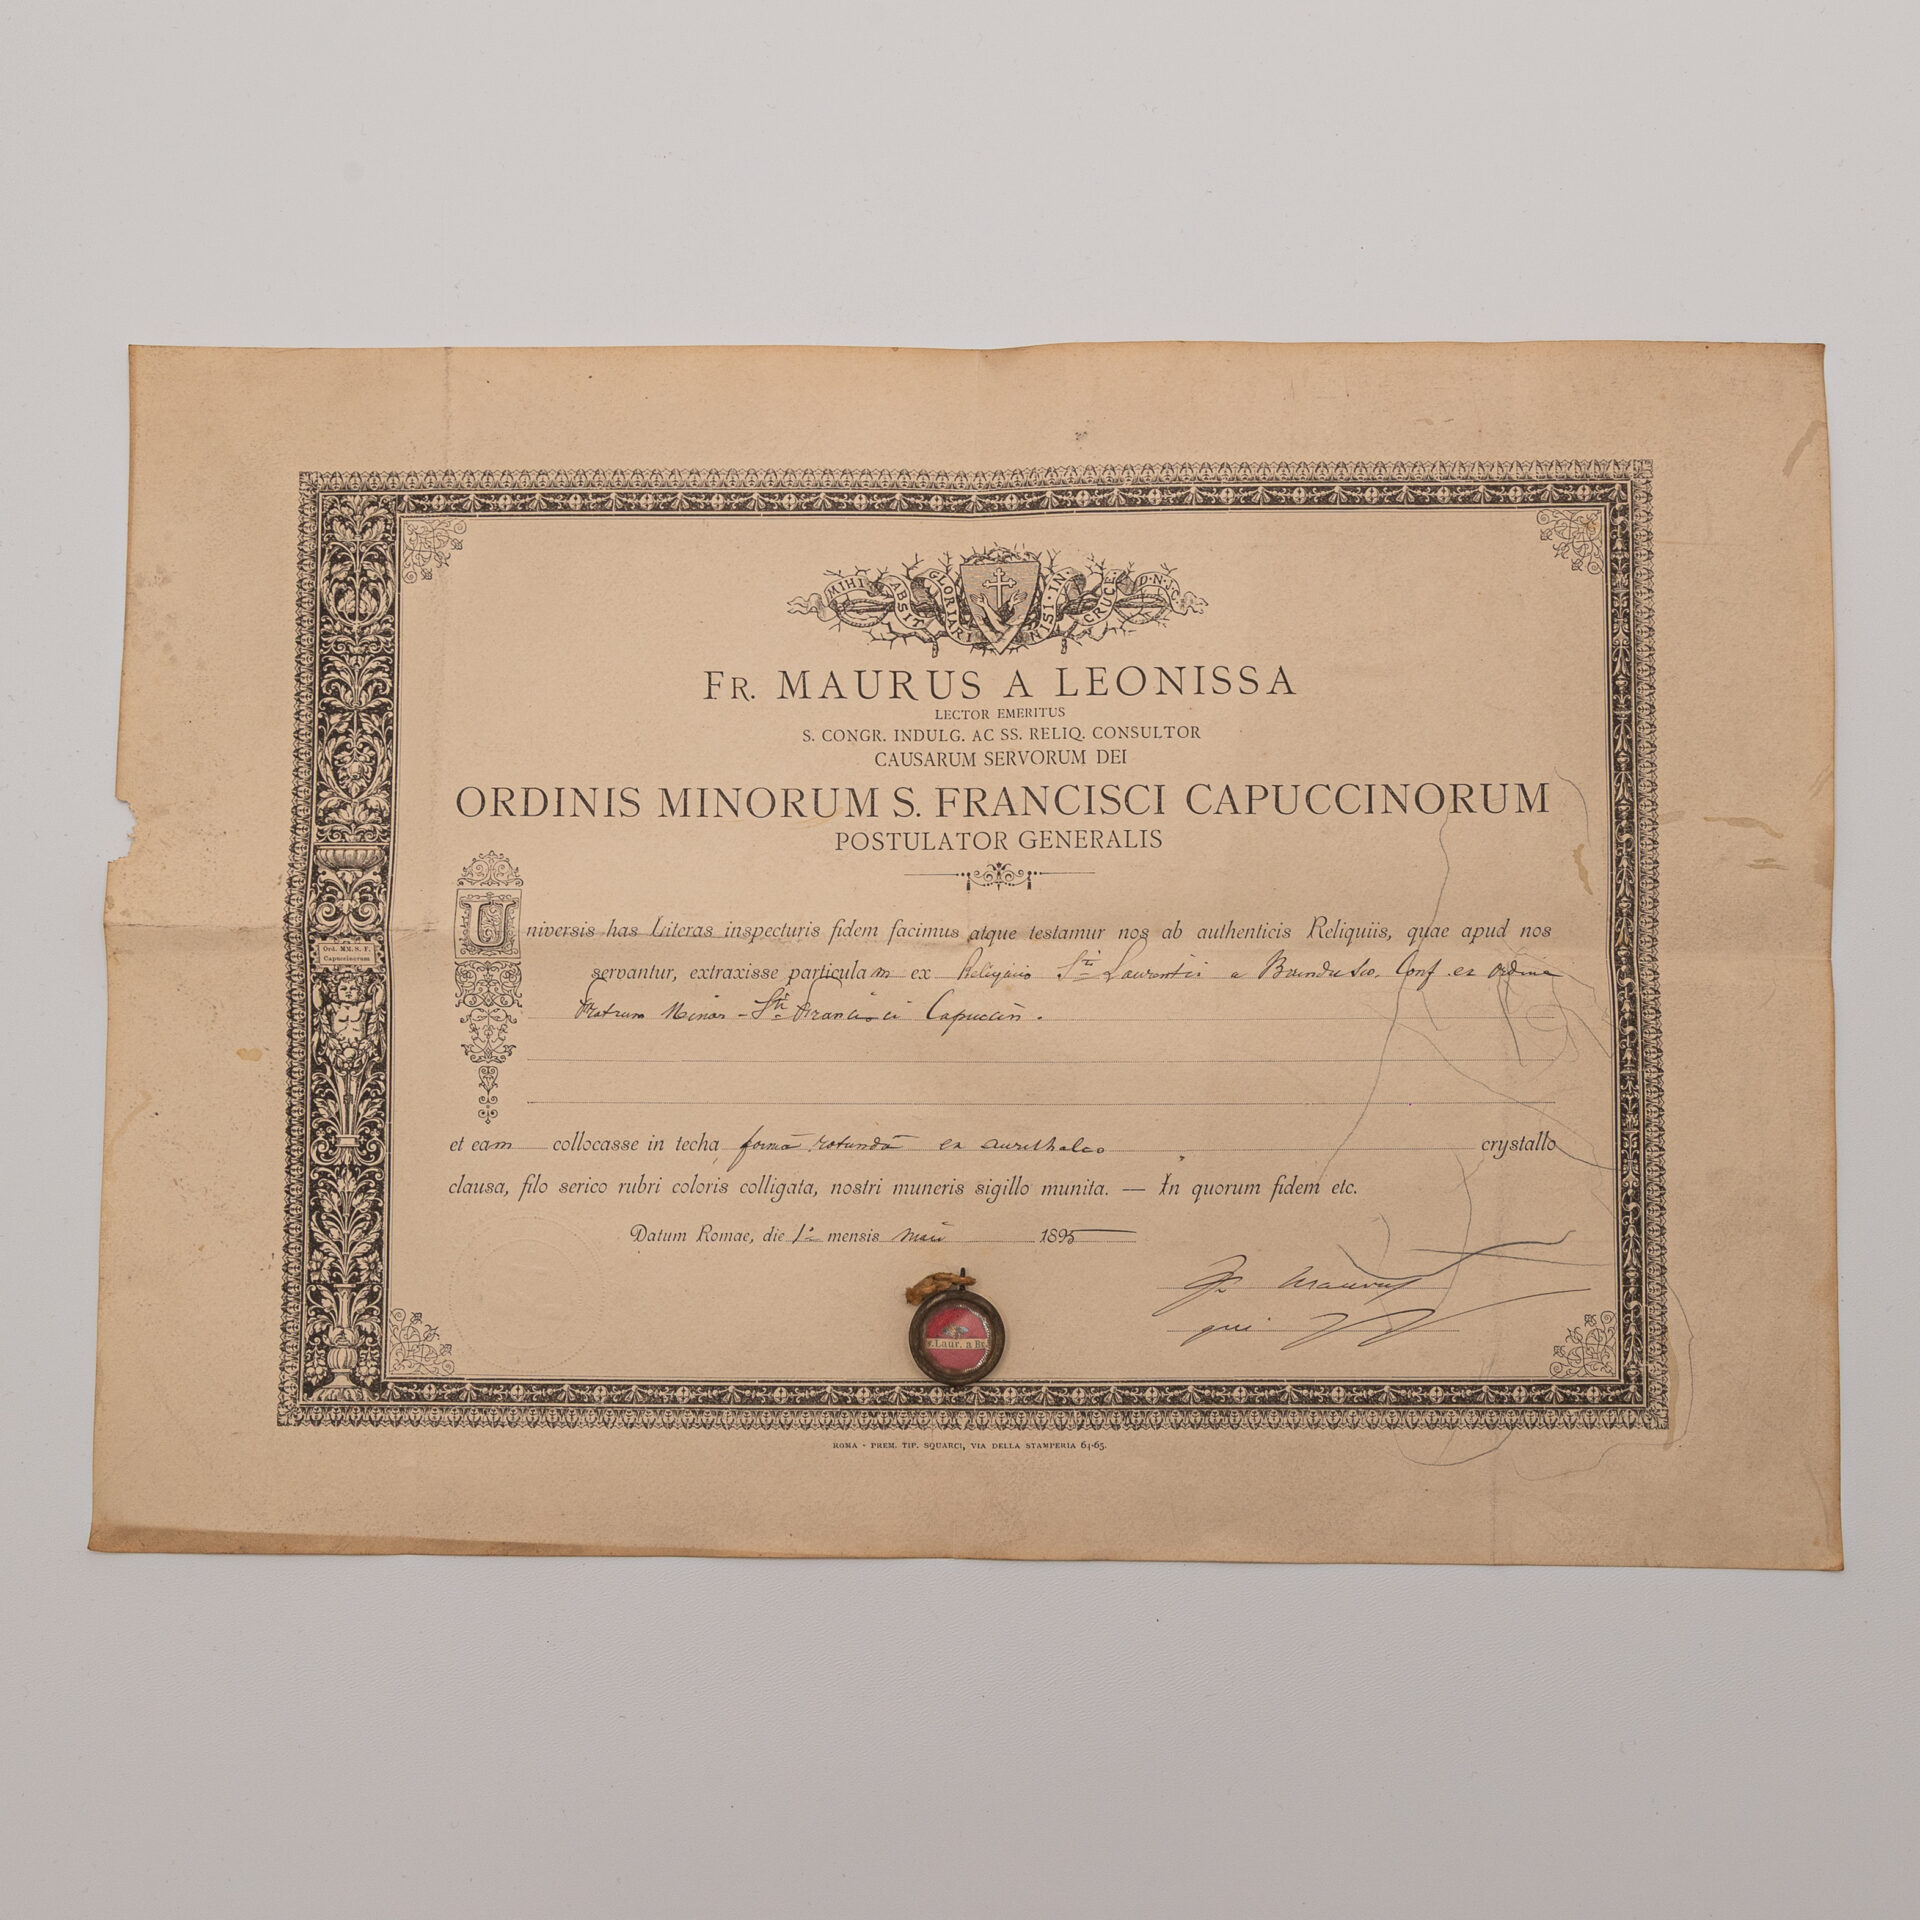 MIHI ABSIT GLORIARI NISI · IN CRUCE D·N·J·C
FR. MAURUS A LEONISSA
LECTOR EMERITUS
S. CONGR. INDULG. AC SS. RELIQ. CONSULTOR
CAUSARUM SERVORUM DEI
ORDINIS MINORUM S. FRANCISCI CAPUCCINORUM
POSTULATOR GENERALIS
Universis has Literas inspecturis fidem facimus atque testamur nos ab authenticis Reliquiis, quae apud nos
servantur, extraxisse particulam ex Reliquiis Sti Laurentii a Brundusio, Conf. ex Ordine
Fratrum Minor. Sti Francisci Capuccin.
et eam collocasse in techa formâ rotundâ ex aurithalco crystallo
clausa, filo serico rubri coloris colligata, nostri muneris sigillo munita. — In quorum fidem etc.
Datum Romae, die 1a mensis Maii 1895
Fr Maurus
qui
Ord. MM. S. F.
Capuccinorum
. Laur. a Br
ROMA - PREM. TIP. SQUARCI, VIA DELLA STAMPERIA 64-65.